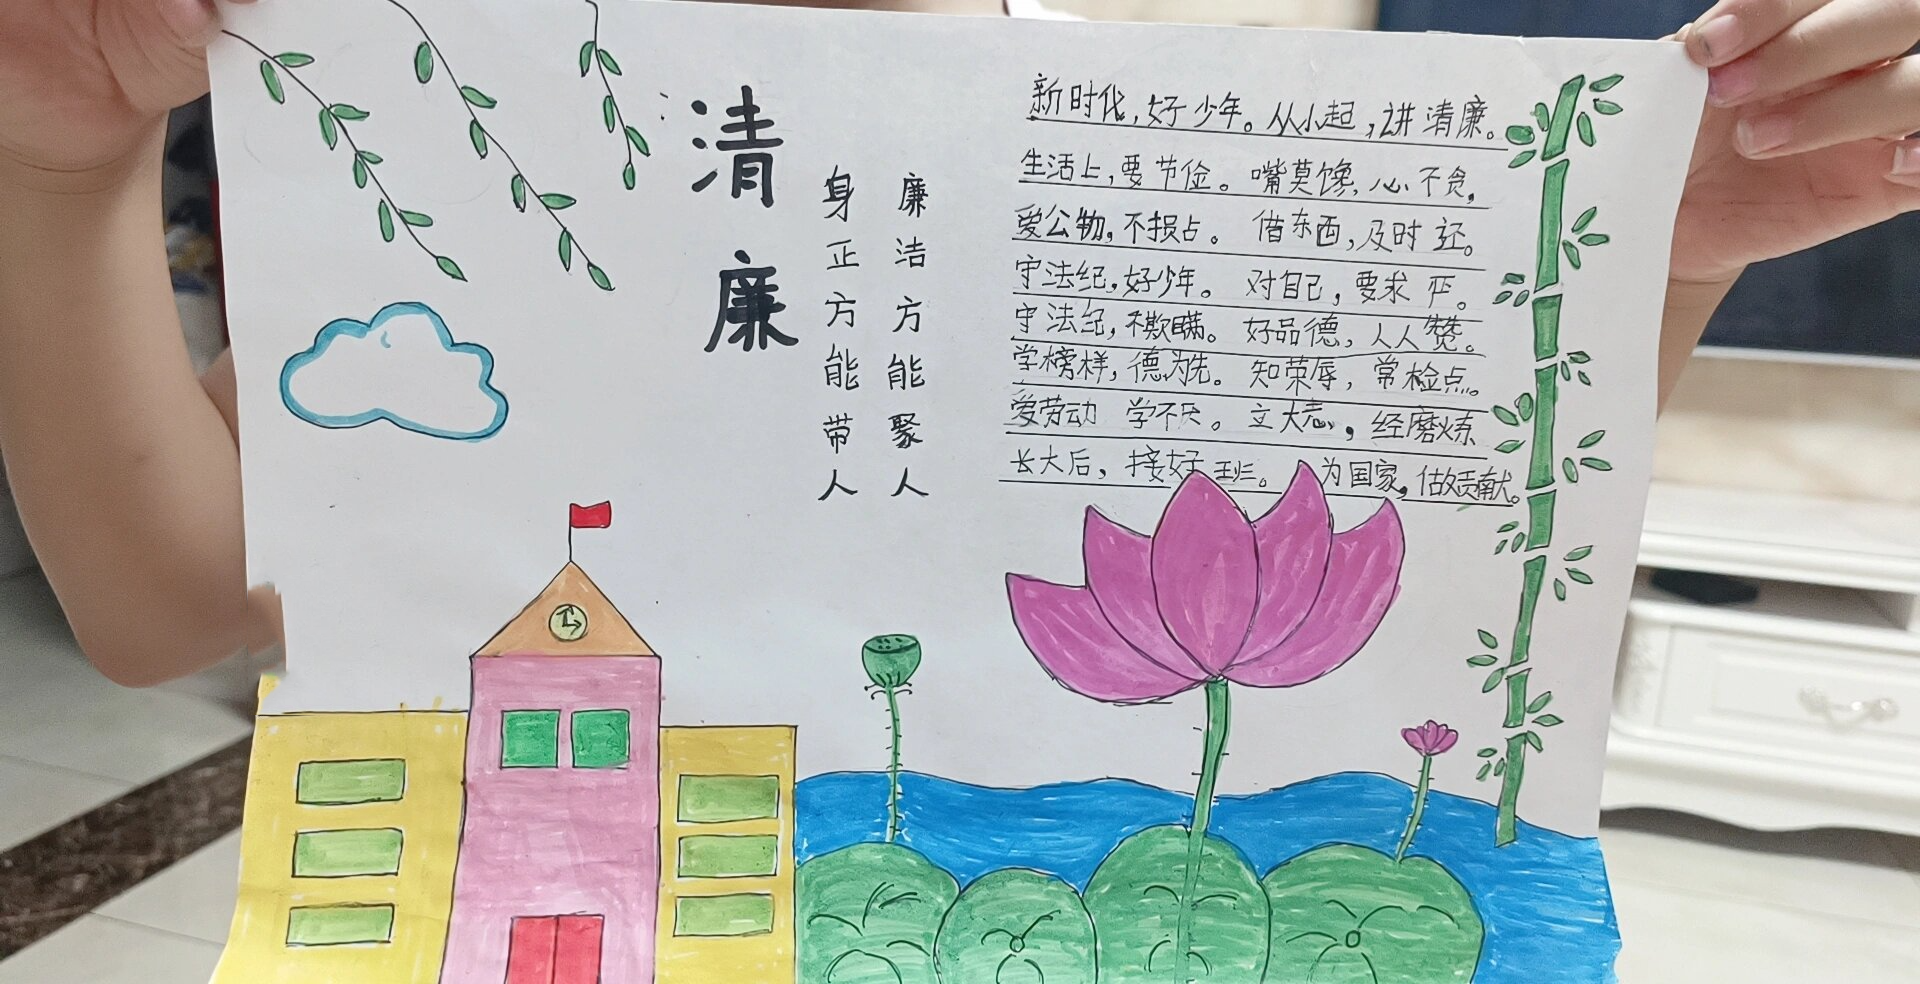 清廉
廉洁方能聚人
身正方能带人
新时代,好少年。从小起,讲清廉。
生活上,要节俭。嘴莫馋,心不贪,
爱公物,不损占。借东西,及时还。
守法纪,好少年。对自己,要求严。
守法纪,不欺瞒。好品德,人人赞。
学榜样,德为先。知荣辱,常检点。
爱劳动 学不厌。立大志,经磨炼
长大后,接好班。为国家,做贡献。